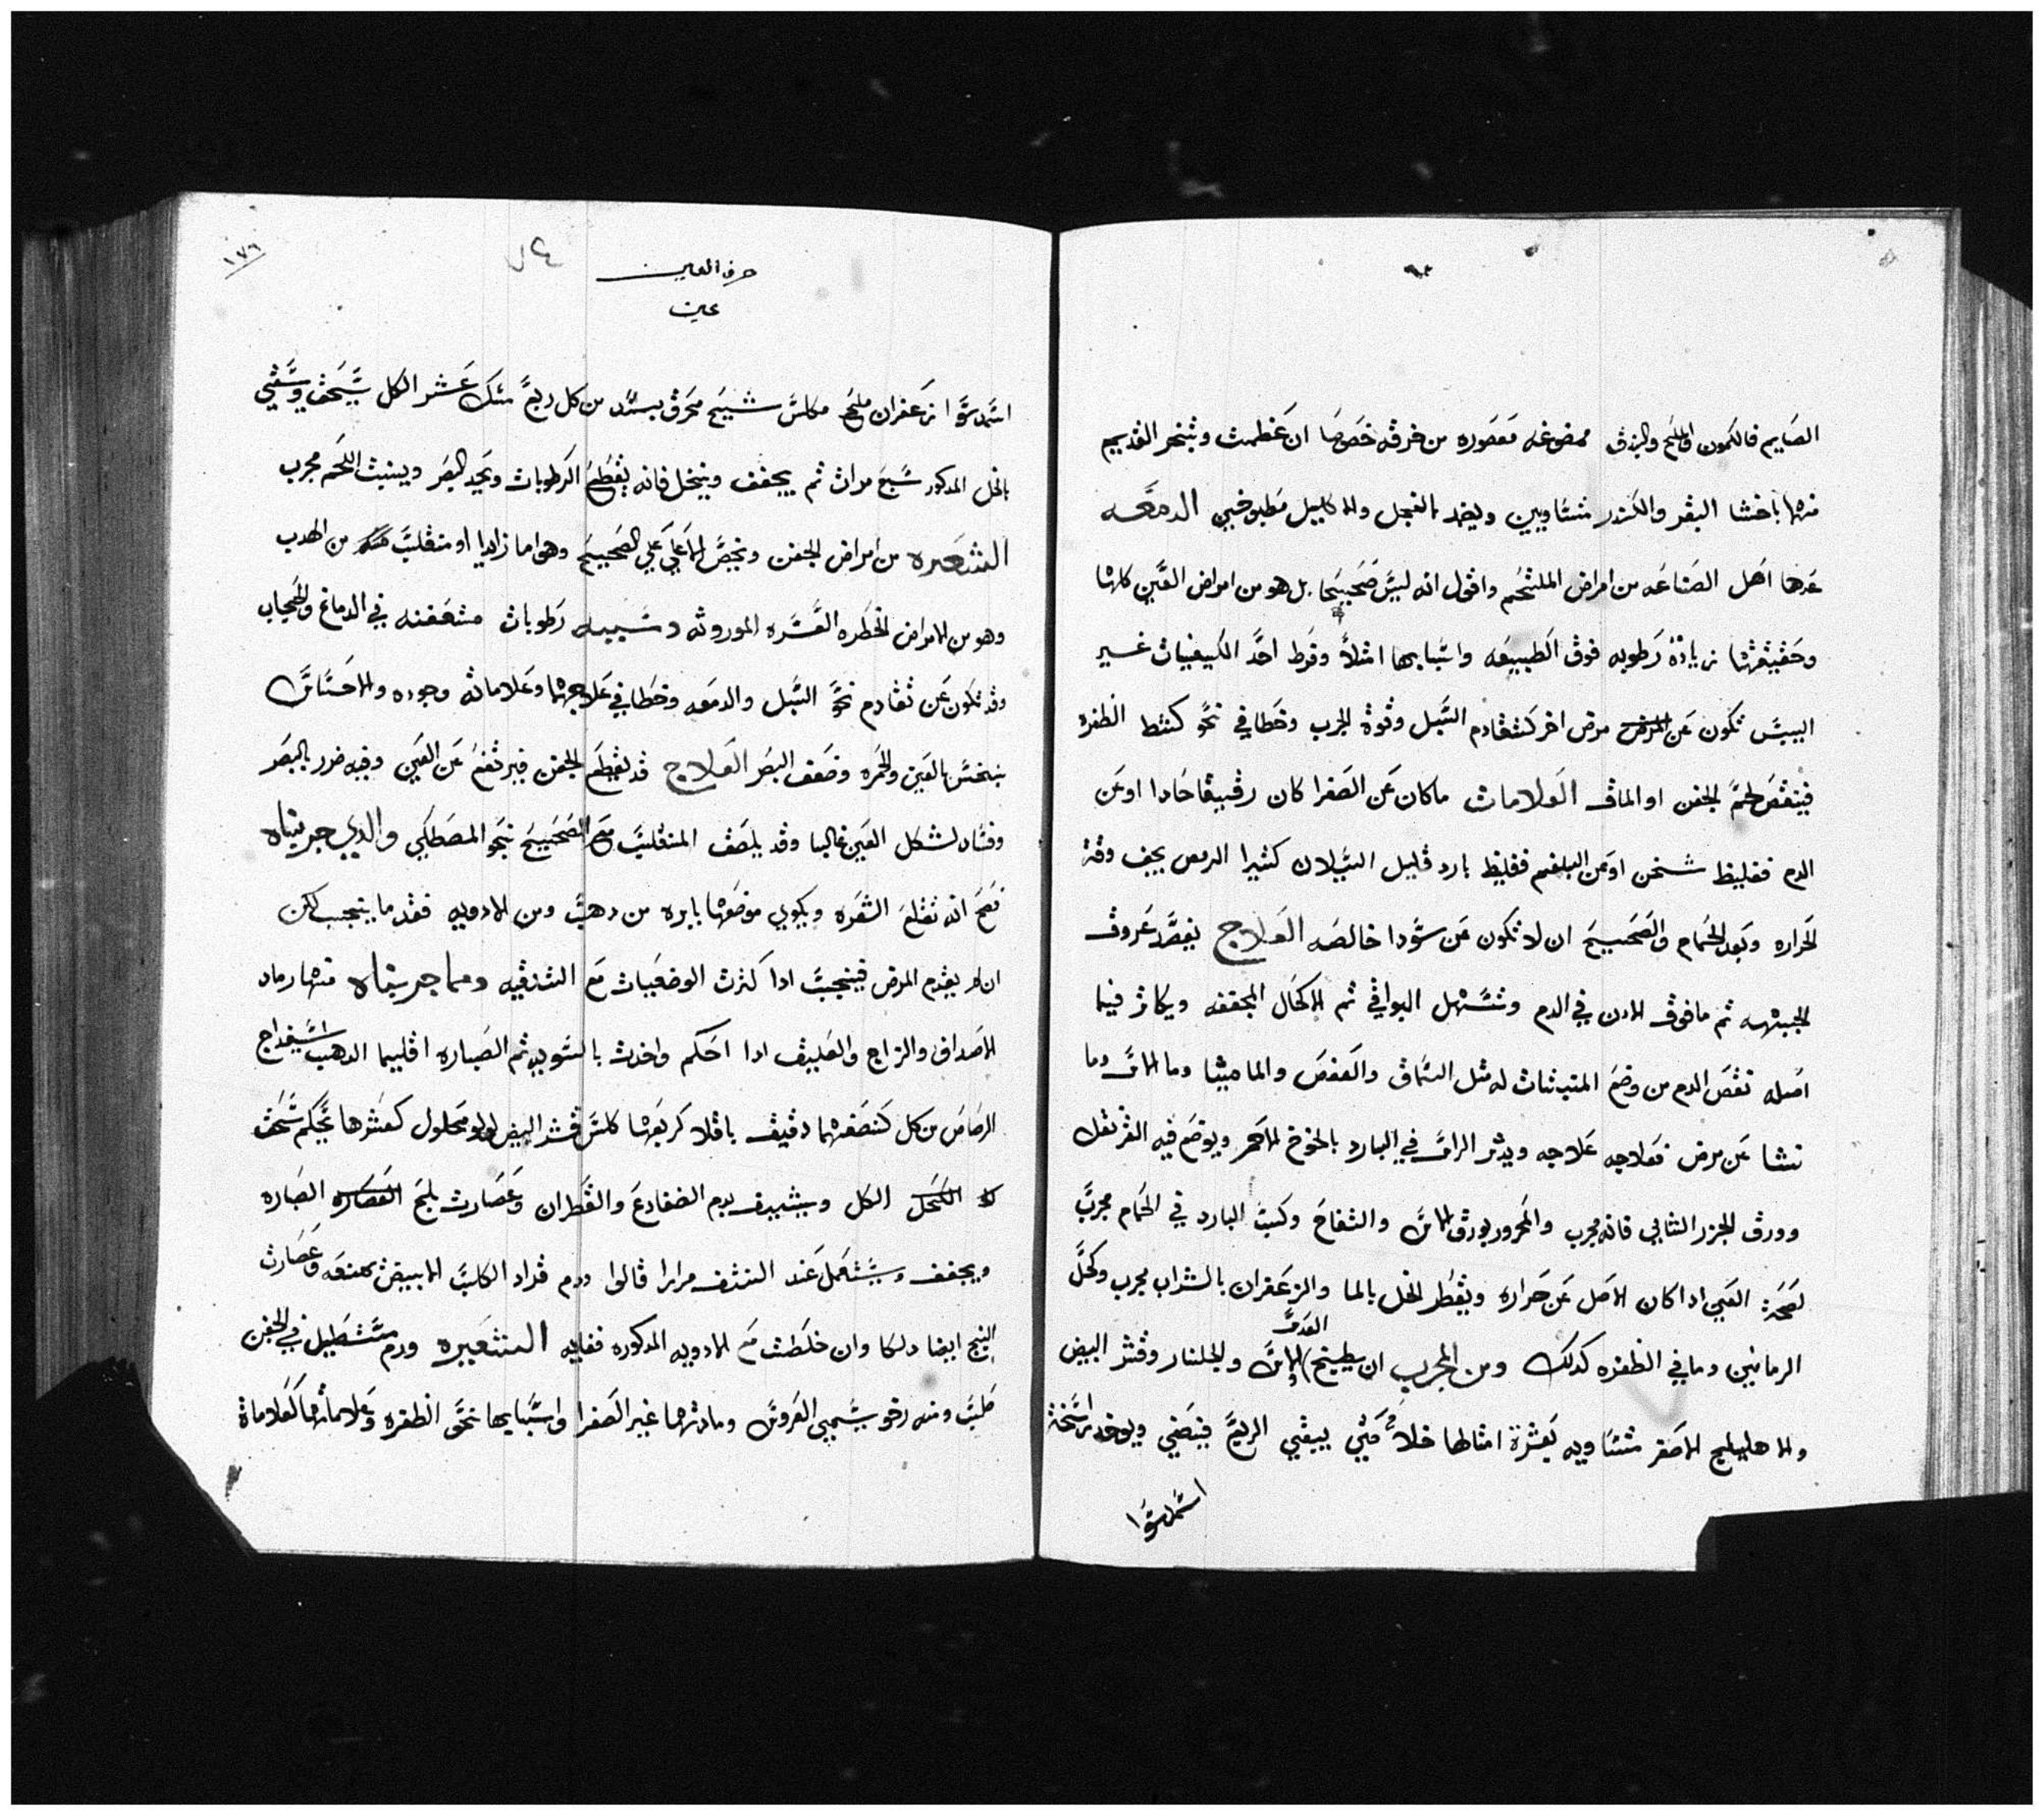 الصايم فالكمون والملح والبندق ممضوغه معصوره من خرقه خصوصا ان عظمت وتنحر القديم
منها باخثا البقر والكندر متساويين ويضمد بالفجل والاكليل مطبوخين الدمعه
عدها اهل الصناعه من امراض الملتحم واقول انه ليس صحيحا بل هو من امراض العين كلها
وحقيقتها زيادة رطوبه فوق الطبيعه واسبابها امتلا وفرط احد الكيفيات غير
اليبس تكون عن المرض مرض اخر كتقادم السبل وقوة الجرب وخطا في نحو كشط الظفره
فينقص لحم الجفن او الماق العلامات ماكان عن الصفرا كان رقيقا حادا اوعن
الدم فغليظ سخن اوعن البلغم فغليظ بارد قليل السيلان كثيرا الرمص يجف وقت
الحراره وبعد الحمام والصحيح ان لا تكون عن سودا خالصه العلاج يفصد عروق
الجبهه ثم مافوق الادن في الدم وتسهل البواقي ثم الاكحال المجففه ويكاثر فيما
اصله نقص الدم من وضع المنبتات له مثل السماق والعفص والماميثا وما الاس وما
نشا عن مرض فعلاجه علاجه ويدثر الراس في البارد بالجوخ الاحمر ويوضع فيه القرنفل
وورق الجزر الشابي فانه مجرب والمحرور بورق الاس والتفاح وكبت البارد في الحمام مجرب
لصحة العين اذا كان الاصل عن حراره ويقطر الخل بالما والزعفران بالشراب مجرب وكحل
الرمانين وما في الظفره كدلك ومن المجرب ان يطبخ العدس الاس والجلنار وقشر البيض
والاهليلج الاصفر متساويه بعشرة امثالها خلا حتي يبقي الربع فيصفي ويوخد راسخت
اسمدسوا
١٧٦
حرف العين
عين
اسمدسوا زعفران ملح مكلس شيح محرق بسد من كل ربع مسك عشر الكل يسحق ويسقي
بالخل المدكور سبع مرات ثم يجفف وينخل فانه يقطع الرطوبات ويحد البصر وينبت اللحم مجرب
الشعره من امراض الجفن وتخص الاعلي علي الصحيح وهي اما زايدا او منقلب من الهدب
وهو من الامراض الخطره العسره الموروثه وسببه رطوبات متعفنه في الدماغ والحجاب
وقد تكون عن تقادم نحو السبل والدمعه وخطا في علاجها وعلاماته وجوده والاحساس
بنخس بالعين والحمره وضعف البصر العلاج قد يقطع الجفن فيرتفع عن العين وفيه ضرر بالبصر
وفساد لشكل العين غالبا وقد يلصق المنقلب مع الصحيح بنحو المصطكي والدي جربناه
فصح انه تقلع الشعره ويكوي موضعها بابره من دهب ومن الادويه فقد ما ينجب لكن
ان لم يقدم المرض فينجب ادا كثرت الوضعيات مع التنقيه ومما جربناه منها رماد
الاصداف والزاج والعليق ادا احكم واخدت بالسويه ثم الصباره اقليميا الدهب اسفيداج
الرصاص من كل كنصفها دقيق باقلا كربعها كلس قشر البيض لولو محلول كعشرها يحكم سحق
الكل ويشيف بدم الضفادع والقطران وعصارت بلح الصباره
ويجفف ويستعمل عند النتف مرارا قالوا ودم قراد الكلب الابيض كهنعه وعصارت
البنج ايضا دلكا وان خلطت مع الادويه المدكوره فغايه الشعيره ورم مستطيل في الجفن
صلب ومنه رخو يسمي العروس ومادتهما غير الصفرا واسبابها نحو الظفره وعلاماتها كعلامات